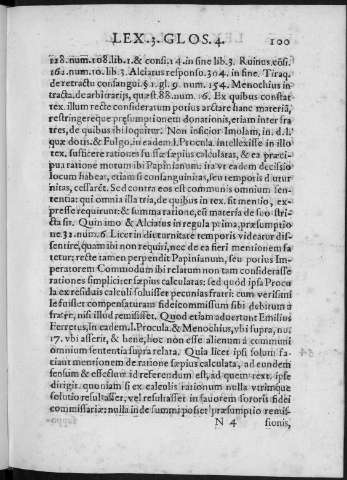 LEX.3. GLOS. 4. 100
118.num.108.lib.1.& consi.14.in fine lib.3. Ruinus cōsi.
162.num.10.lib.3. Alciatus responso.304.in fine. Tiraq.
de retractu consangui.§ 1.gl.9. num.154. Menochius in
tracta.de arbitrarijs, quæst.88.num.6. Ex quibus constat
tex.illum recte consideratum potius arctare hanc materiā,
restringereque præsumptionem donationis, etiam inter fra
tres, de quibus ibi loquitur. Non inficior Imolam, in.d.l.
quæ dotis.& Fulgo.in eadem l.Procula. intellexisse in illo
tex. sufficere rationes fuisse sæpius calculatas, & ea præci-
pua ratione motum ibi Papinianum: ita vt eadem decissio
locum habeat, etiam si consanguinitas, seu temporis diutur
nitas, cessarēt. Sed contra eos est communis omnium sen-
tentia: qui omnia illa tria, de quibus in tex. fit mentio, ex-
presse requirunt: & summa ratione, est materia de suo stri-
cta sit. Quin imo & Alciatus in regula prima, præsumptio
ne.31.num.6. Licet in diuturnitate temporis videatur dis-
sentire, quam ibi non requiri, nec de ea fieri mentionem fa
tetur; recte tamen perpendit Papinianum, seu potius Im-
peratorem Commodum ibi relatum non tam considerasse
rationes simpliciter sæpius calculatas: sed quòd ipsa Procu
la ex residuis calculi soluisset pecunias fratri: cum verisimi
le fuisset compensaturam fideicommissum sibi debitum à
fratre, nisi illud remisisset. Quod etiam aduertunt Emilius
Ferretus, in eadem.l.Procula & Menochius, vbi supra, nu.
17. vbi asserit, & bene, hoc non esse alienum à communi
omnium sententia supra relata. Quia licet ipsi solum fa-
ciant mentionem de ratione sæpius calculata, ad eundem
sensum & effectum id referendum est, ad quem text. ipse
dirigit. quoniam si ex calculis rationum nulla vtrimque
solutio resultasset, vel resultasset in fauorem sororis fidei
commissariæ: nulla inde summi posset præsumptio remis-
N 4 sionis,